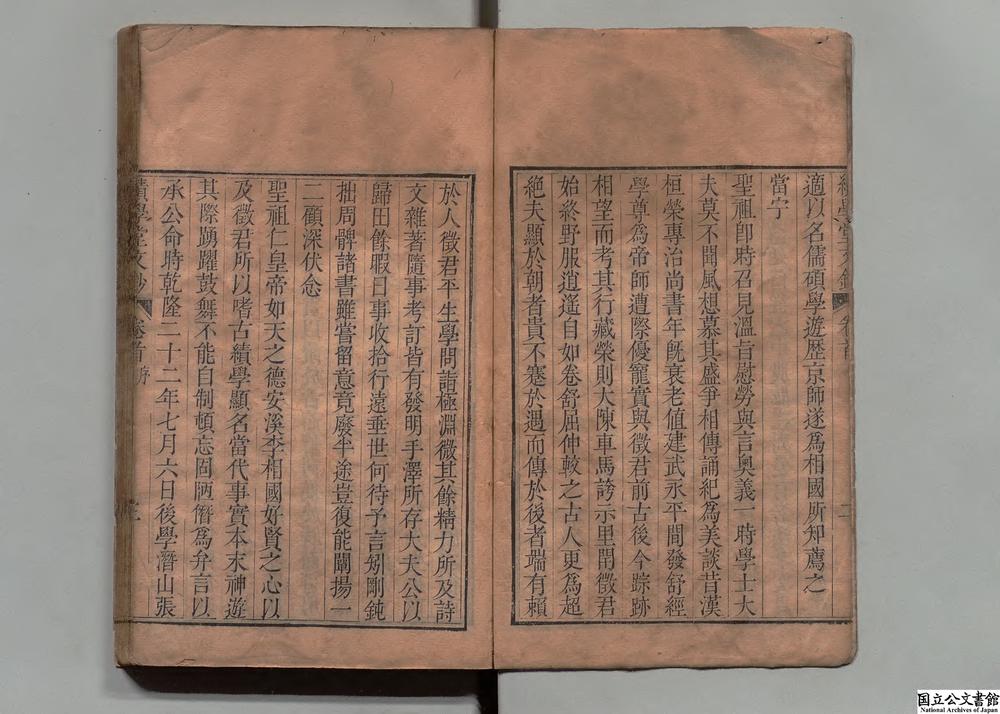 績學堂文鈔 卷首 二
適以名儒碩學遊歴京師遂為相國所知薦之
當宁
聖祖卽時召見溫旨慰勞與言奧義一時學士大
夫莫不聞風想慕其盛爭相傳誦紀為美談昔漢
桓榮專治尚書年旣衰老值建武永平間發舒經
學尊為帝師遭際優寵實與徵君前古後今踪跡
相望而考其行藏榮則大陳車馬誇示里閈徵君
始終野服逍遙自如卷舒屈伸較之古人更為超
絶夫顯於朝者貴不蹇於遇而傳於後者端有賴
於人徵君平生學問詣極淵微其餘精力所及詩
文雜著隨事考訂皆有發明手澤所存大夫公以
歸田餘暇日事收拾行遠垂世何待予言矧剛鈍
拙周髀諸書雖嘗留意竟廢半途豈復能闡揚一
二顧深伏念
聖祖仁皇帝如天之德安溪李相國好賢之心以
及徵君所以嗜古績學顯名當代事實本末神遊
其際踴躍鼓舞不能自制頓忘固陋僭為弁言以
承公命時乾隆二十二年七月六日後學潛山張
績學堂文鈔 卷首 序
国立公文書館
National Archives of Japan